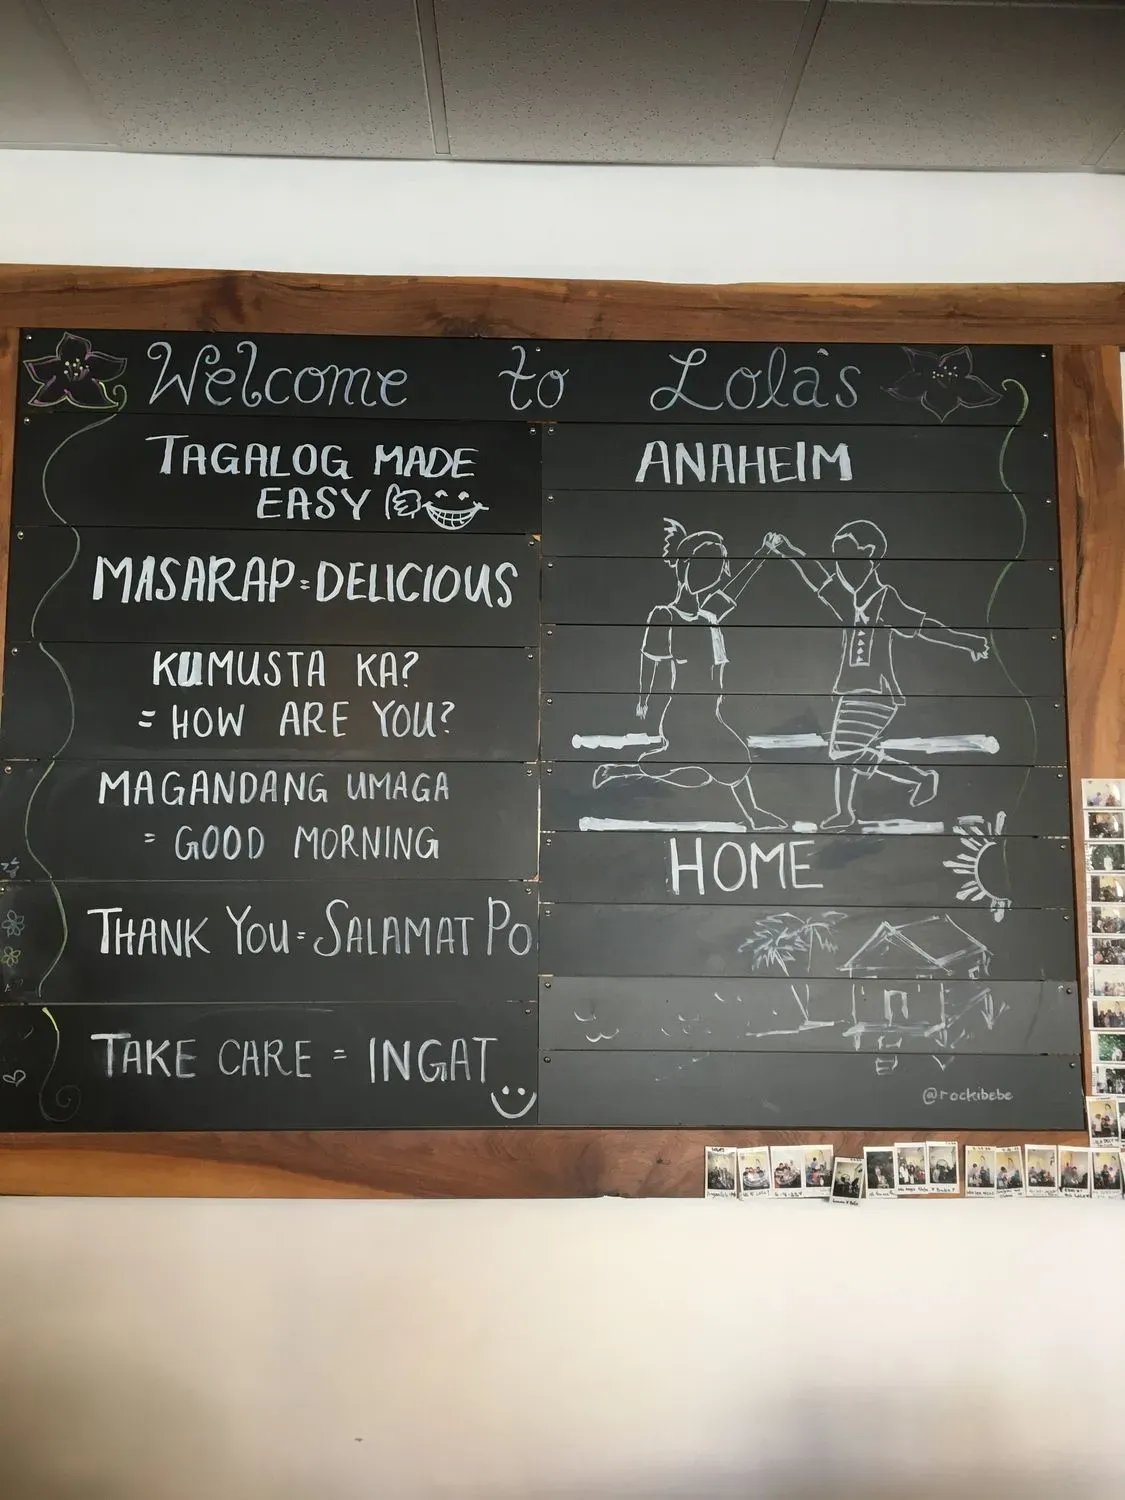 Welcome to Lola's
TAGALOG MADE
EASY
MASARAP=DELICIOUS
KUMUSTA KA?
= HOW ARE YOU?
MAGANDANG UMAGA
= GOOD MORNING
THANK YOU=SALAMAT PO
TAKE CARE = INGAT
ANAHEIM
HOME
@rockibebe